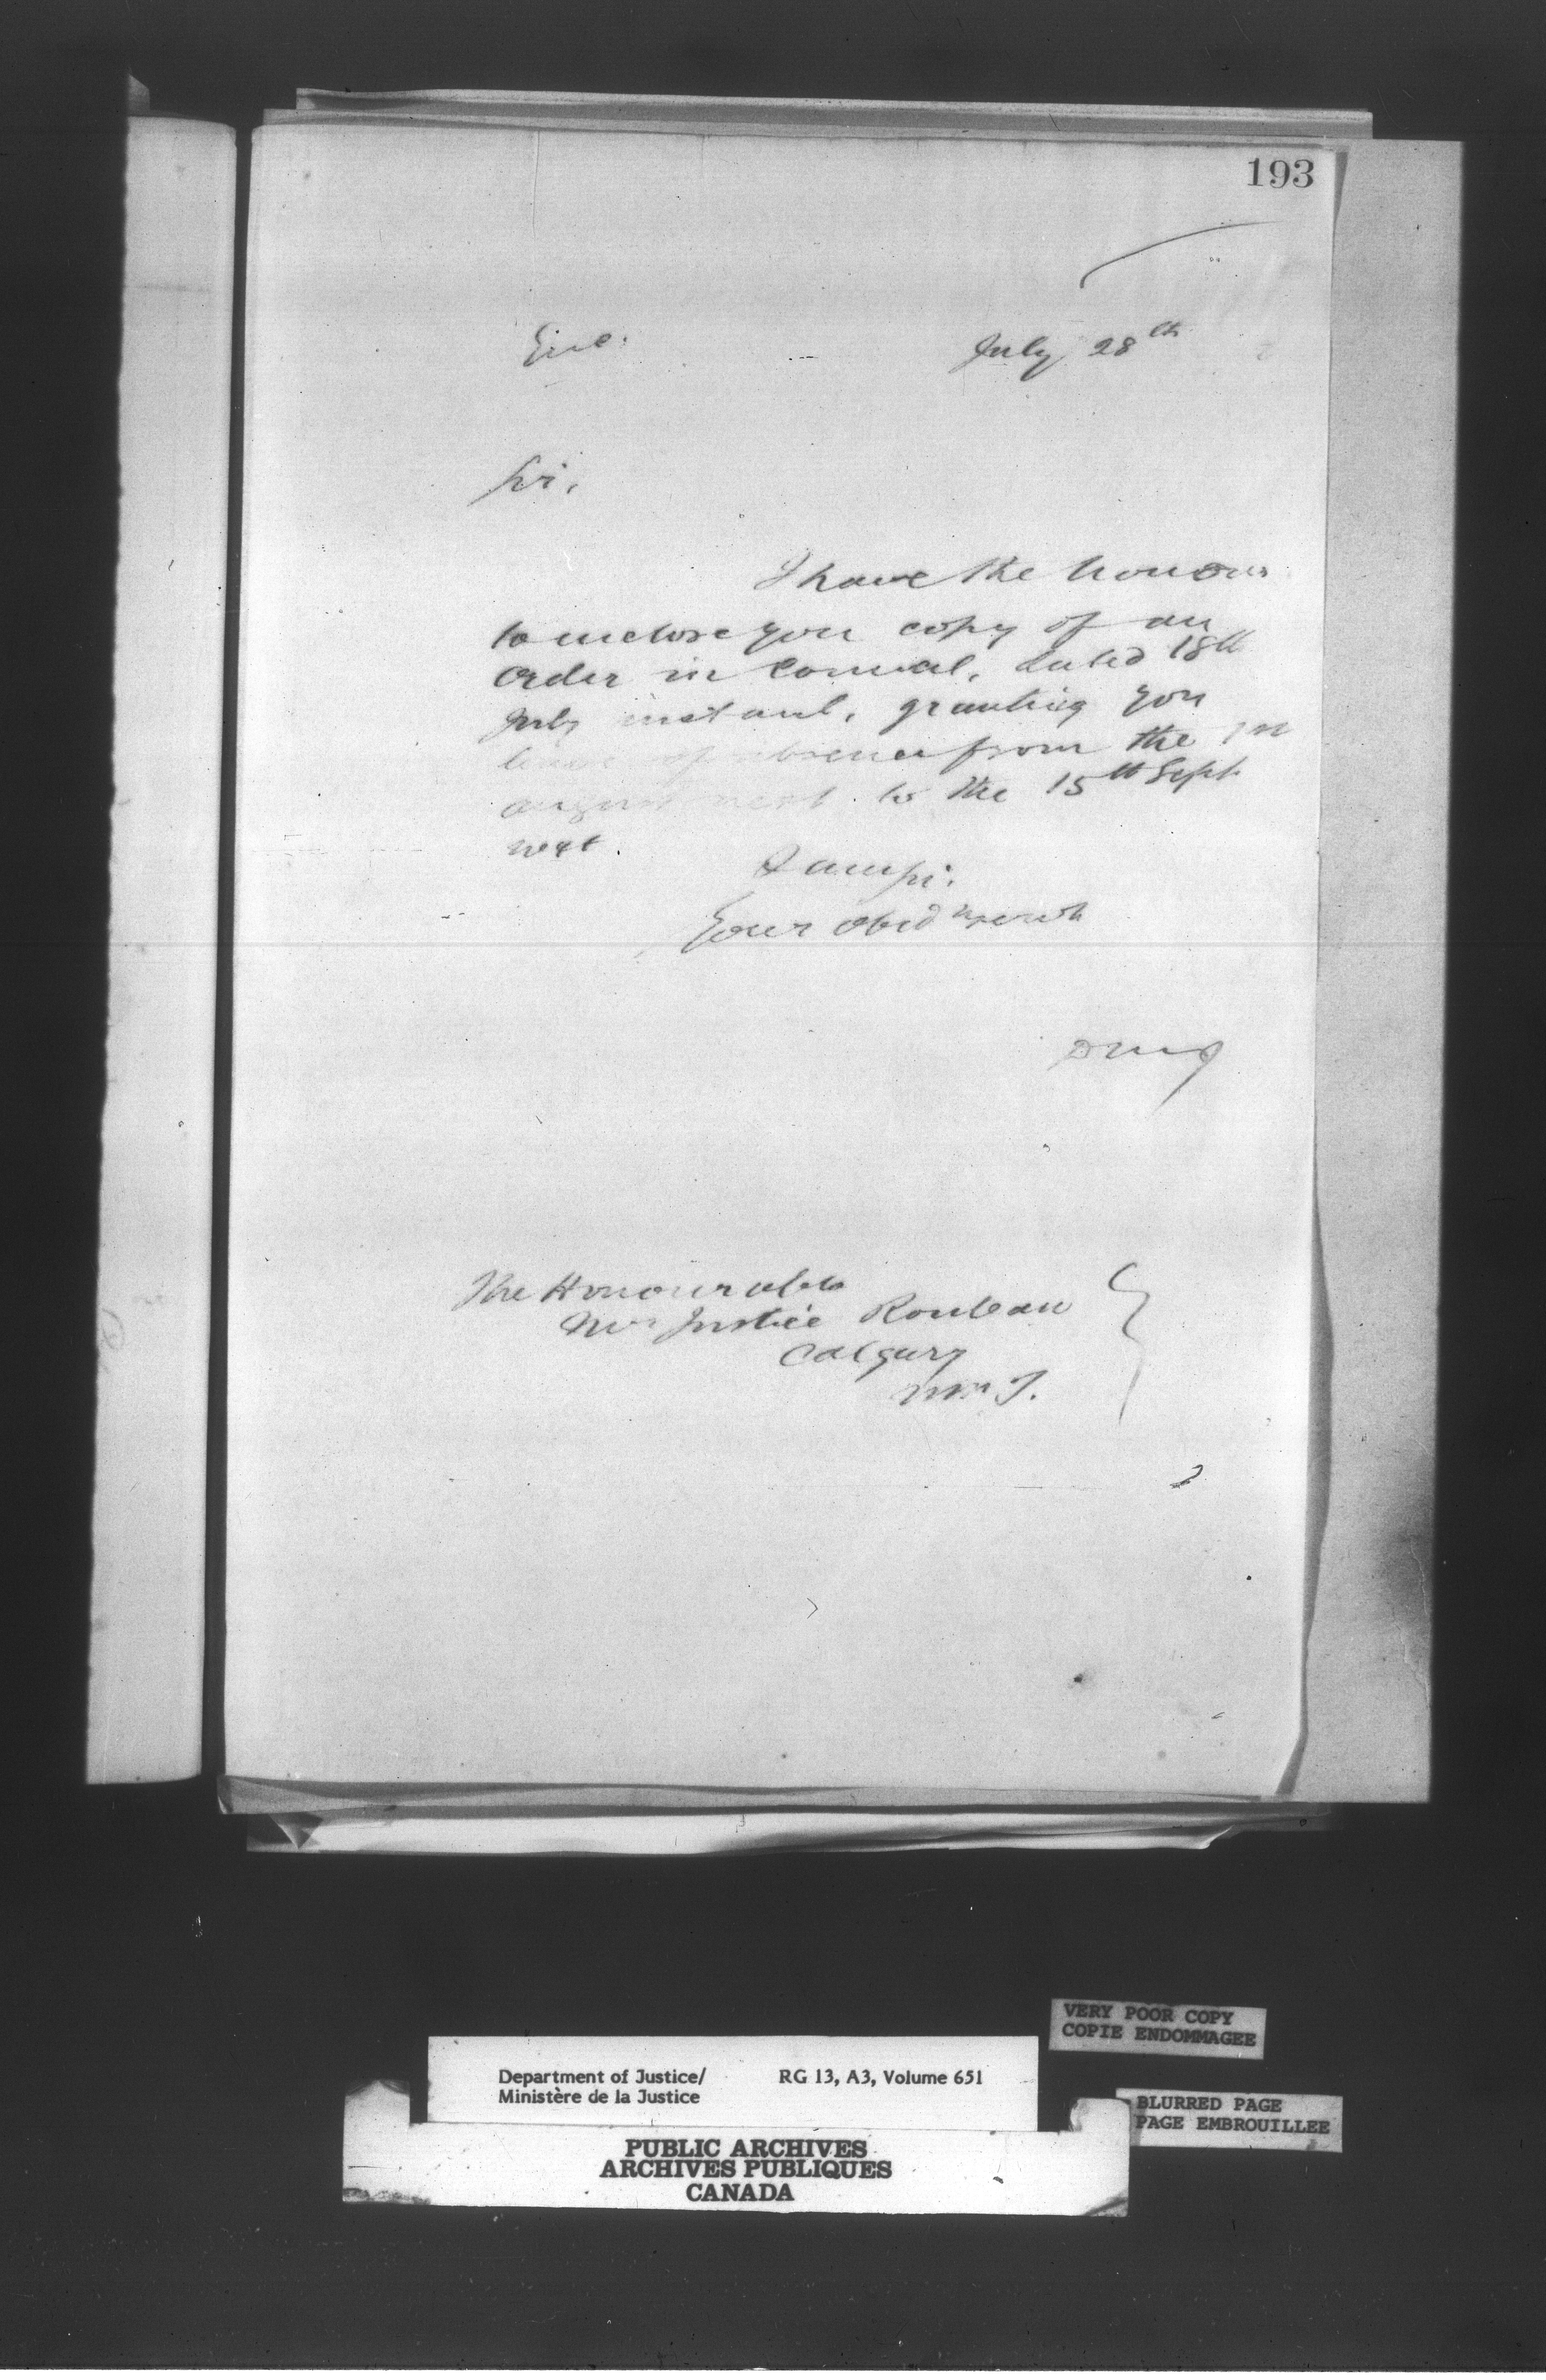 193
Enc.
July 28th
Sir,
I have the honour
to enclose you copy of an
Order in Council, dated 18th
July instant, granting you
leave of absence from the 1st
August next to the 15th Sept
next.
I am sir,
Your obed serv
The Honourable
Mr Justice Rouleau
Calgary
N.W.T.
VERY POOR COPY
COPIE ENDOMMAGEE
Department of Justice/
Ministère de la Justice
RG 13, A3, Volume 651
BLURRED PAGE
PAGE EMBROUILLEE
PUBLIC ARCHIVES
ARCHIVES PUBLIQUES
CANADA